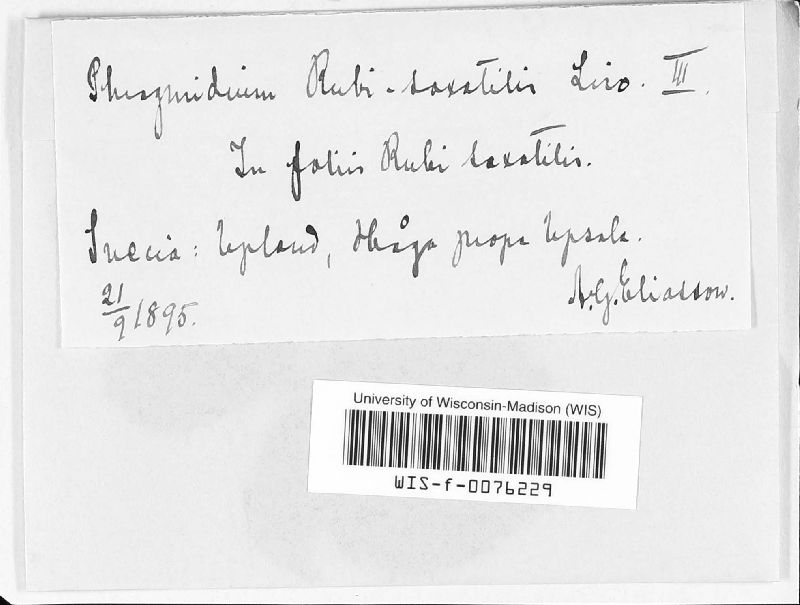 Phragmidium Rubi-saxatilis Liro. III.
In foliis Rubi saxatilis.
Suecia: Upland, Håga prope Upsala.
21/9 1895.
A.G. Eliasson.
University of Wisconsin-Madison (WIS)
WIS-f-0076229